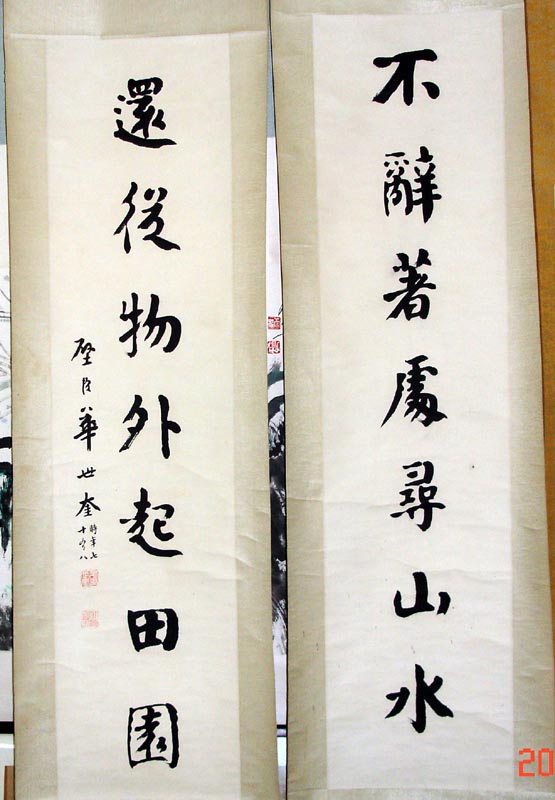 不辭著處尋山水
還從物外起田園
璧臣華世奎
時年七
十有八
20